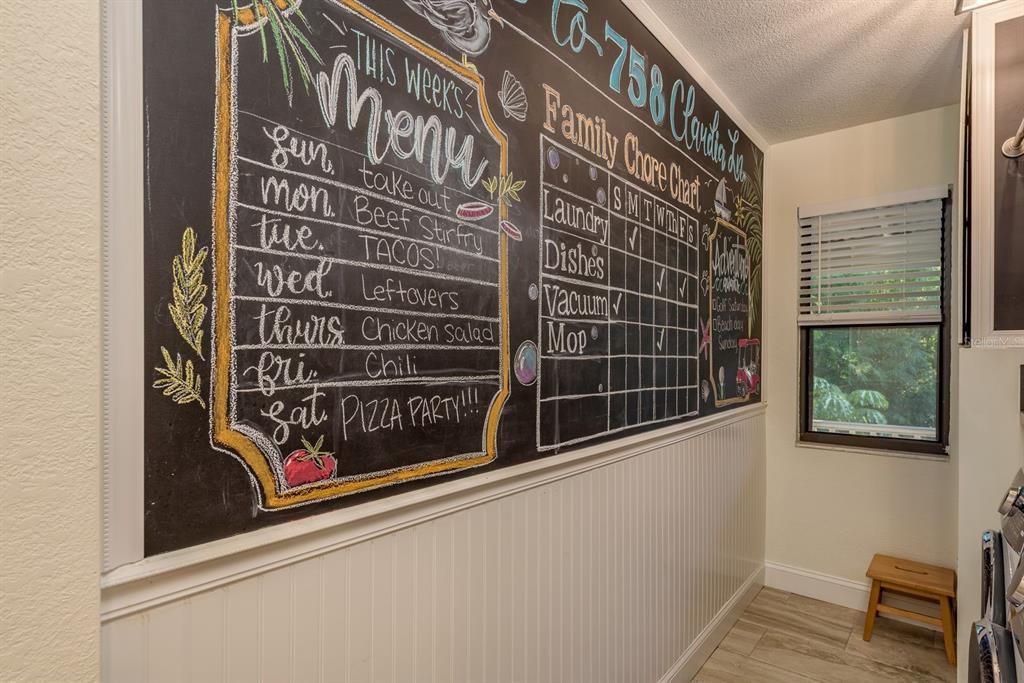 to 758 Claudia Ln.
THIS WEEKS
Menu
Sun. take out
Mon. Beef Stirfry
tue. TACOS!
wed. Leftovers
thurs. Chicken salad
fri. Chili
Sat. PIZZA PARTY!!!
Family Chore Chart
S M T W Th F S
Laundry
Dishes
Vacuum
Mop
Adventure
Golf Saturday
Beach day
Sunday
StellarMLS